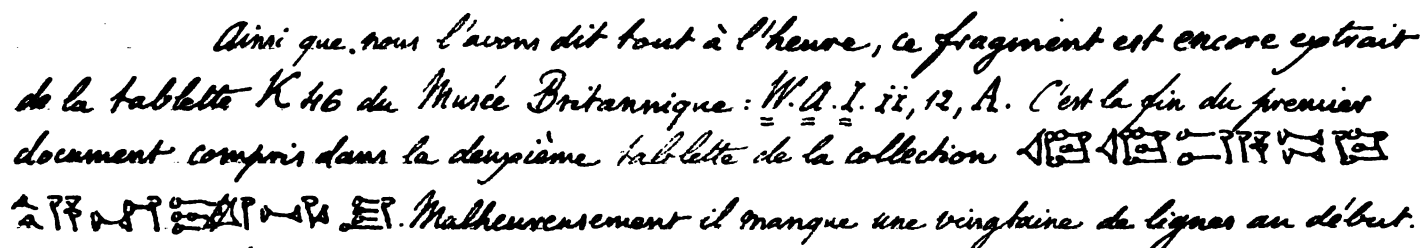 Ainsi que nous l'avons dit tout à l'heure, ce fragment est encore extrait
de la tablette K 46 du Musée Britannique : W. A. I. ii, 12, A. C'est la fin du premier
document compris dans la deuxième tablette de la collection
. Malheureusement il manque une vingtaine de lignes au début.